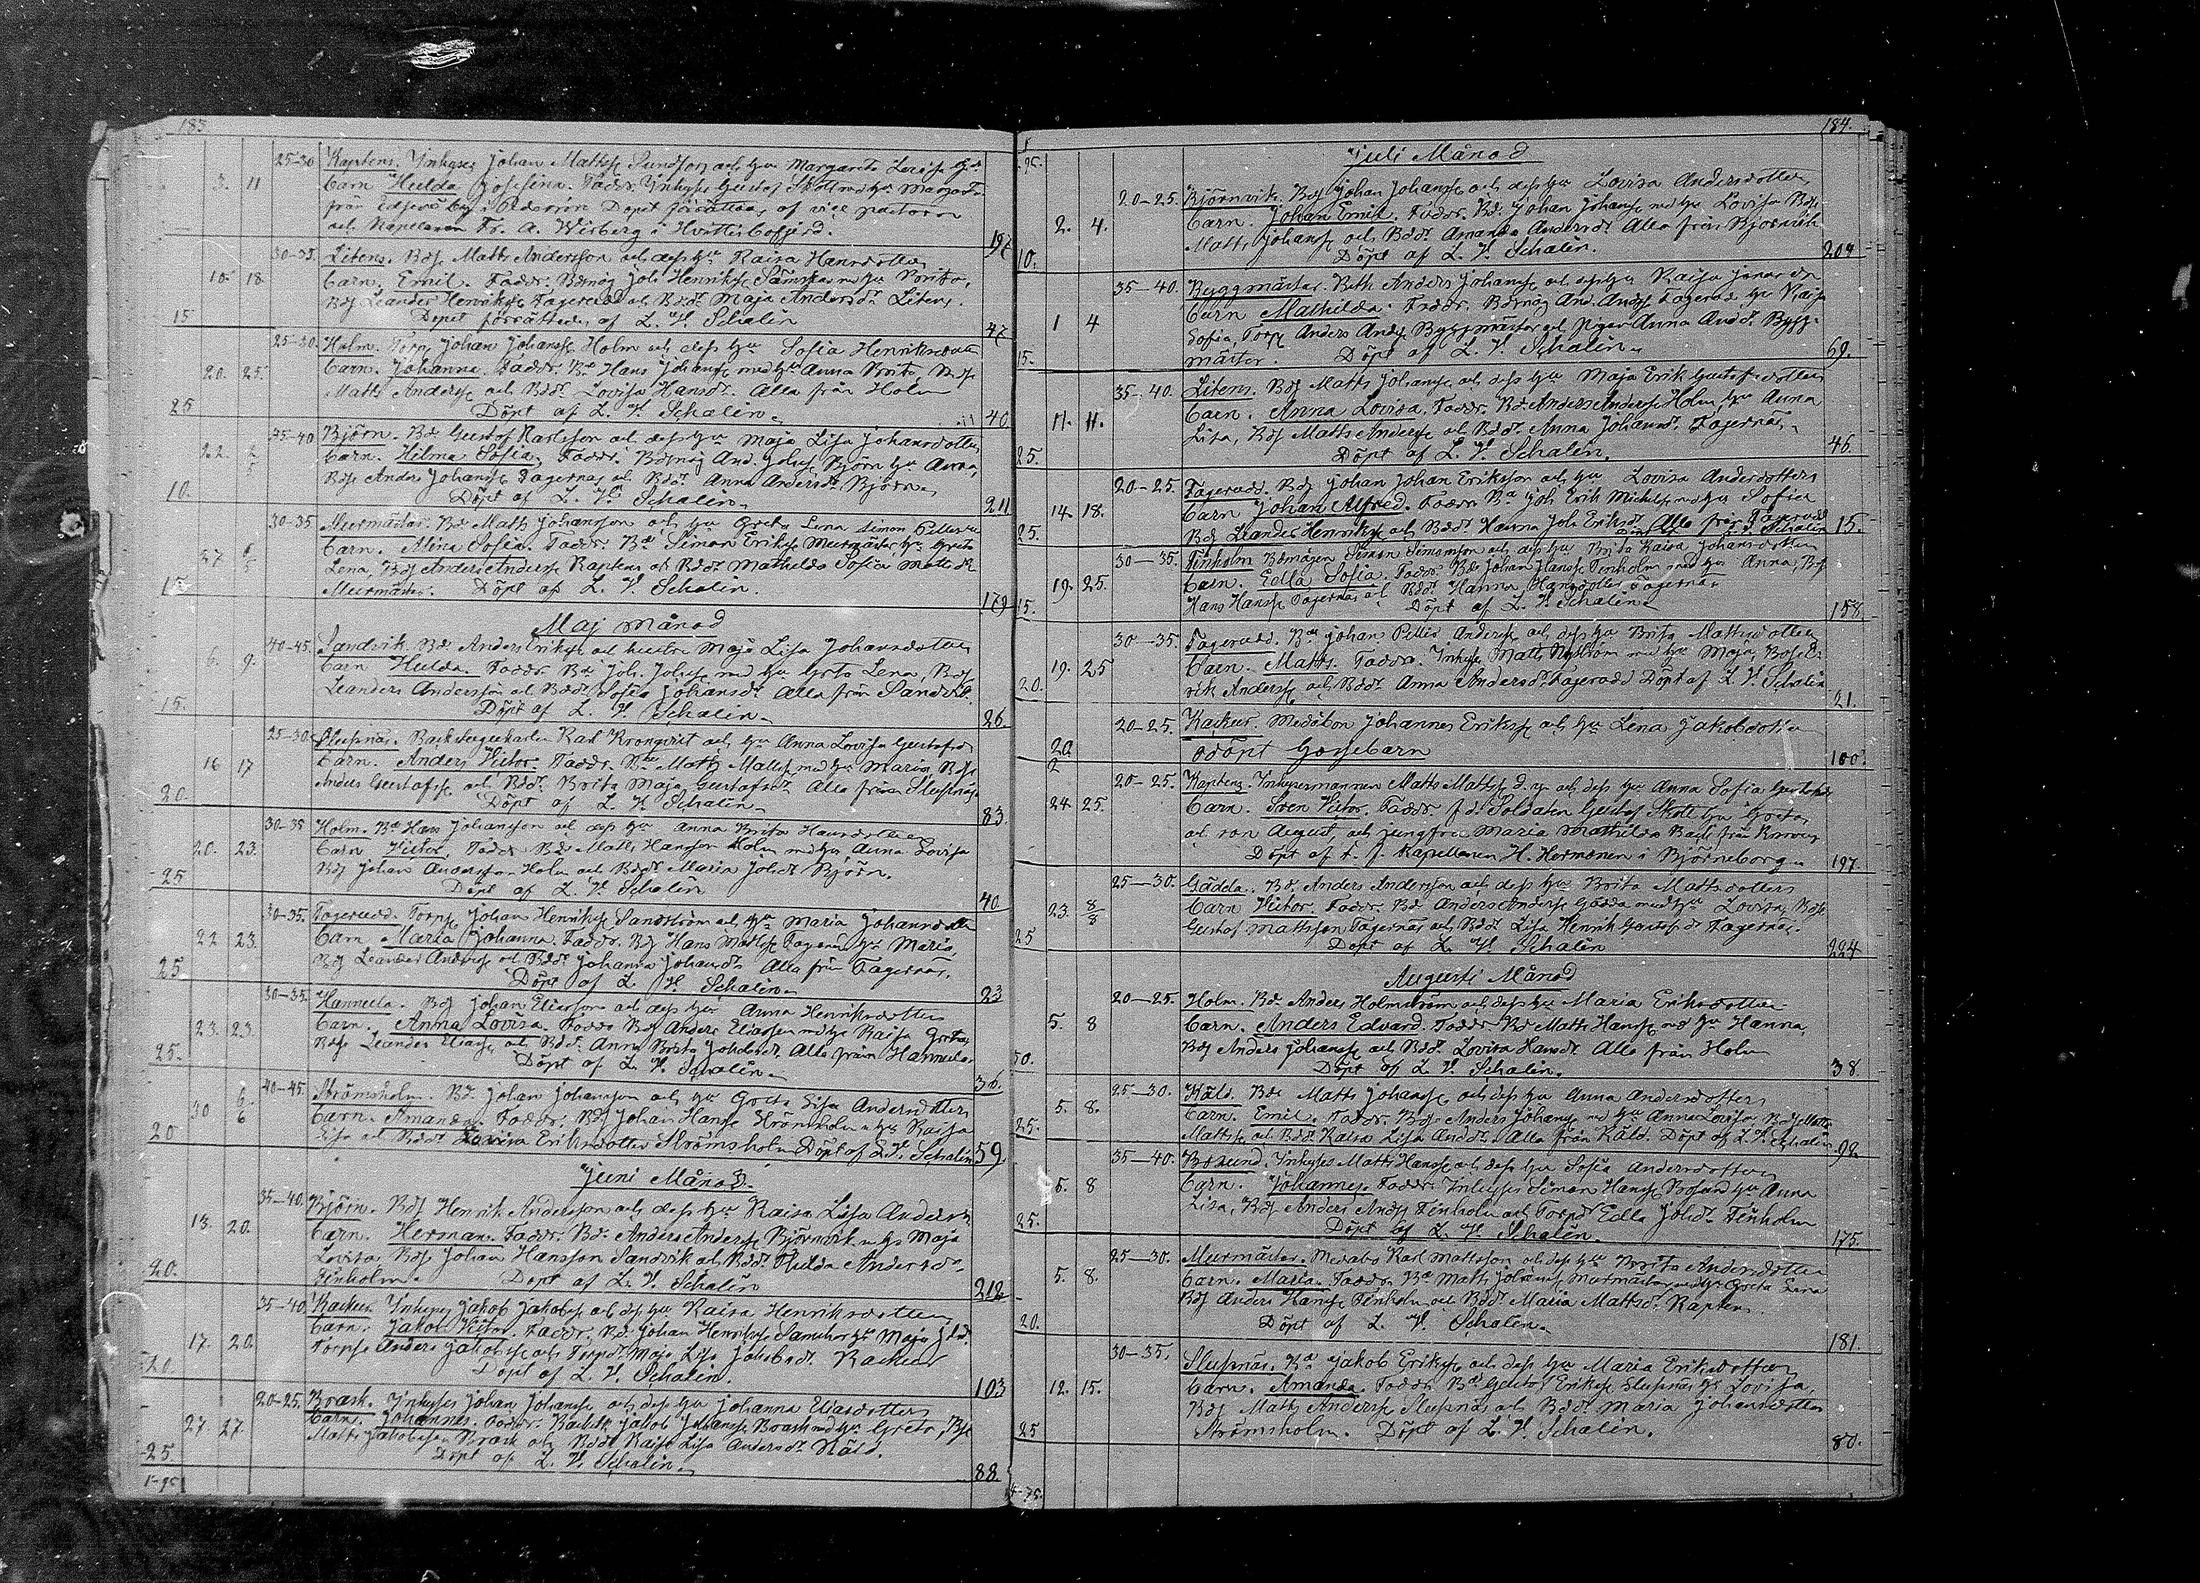 183
25-30 Kaptens. Inhyses Johan Mattss Sundson och hu Margareta Lovisa Gs
3. 11 Barn Hulda Josefina. Faddr. Inhyse Gustaf Skott med hu Margreta
från by i Dopet förrättades af vice pastorn
och Kapellanen Fr. A. Wisberg i Hvittisbofjerd. 197
30-35. Litens. Bdsn Matts Andersson och dess hu Kaisa Hansdotter
10. 18. Barn, Emil. Faddr. Bdmåg Joh. Henrikss Sämskar med hu Brita,
Bds Leander Henrikss Fagerudd och Bddt Maja Andersdt Litens.
15 Dopet förrättades af L. W. Schalin 47
25-30. Holm. Torp. Johan Johanss Holm och dess hu Sofia Henriksdotter
20. 25. Barn. Johanna. Faddr. Bd Hans Johanss med hu Anna Brita Bds
Matts Anderss och Bddt. Lovisa Hansdt. Alla från Holm
25 Döpt af L. W. Schalin. 40.
35-40 Björn. Bd Gustaf Karlsson och dess hu Maja Lisa Johansdotter
22. 2/5 Barn. Hilma Sofia. Faddr. Bdmåg And. Johss Björn hu Anna,
Bds Anders Johanss Fagernäs och Bddt. Anna Andersdt Björn.
10. Döpt af L. W. Schalin. 211
30-35 Murmästar. Bd Matts Johansson och hu Greta Lena Simon Petters
27 6/5 Barn. Alina Sofia. Faddr. Bd Simon Erikss Murmästar hu Greta
Lena, Bds Anders Anderss Kaptens och Bddt Mathilda Sofia Mattsdt
15. Murmästar. Döpt af L. W. Schalin. 179
Maj Månad
40-45. Sandvik Bd Anders Erikss och hustru Maja Lisa Johansdotter
6. 9. Barn Hulda. Faddr Bd Joh. Johss med hu Greta Lena, Bds
Leander Andersson och Bddt Sofia Johansdt alla från Sandvik.
15. Döpt af L. W. Schalin. 26
25-30. Slusnäs. Karl Kronqvist och hu Anna Lovisa Gustafsd
16 17 Barn. Anders Victor. Faddr. Bd Matts Mattss med hu Maria Bds
Anders Gustafss och Bddt. Brita Maja Gustafsdt Alla från Slusnäs.
20. Döpt af L. W. Schalin. 83.
30-35 Holm. Bd Hans Johansson och dess hu Anna Brita Hansdotter
20. 23. Barn Victor. Faddr Bd Matts Hansson Holm med hu Anna Lovisa
Bds Johan Andersson Holm och Bddt Maria Johdt Björn.
25 Döpt af L. W. Schalin 40.
30-35. Fagerudd. Torps Johan Henrikss Sandström och hu Maria Johansdotter
22 23. Barn, Maria Johanna. Faddr. Bds Hans Mattss Fagernäs hu Maria,
Bds Leander Anderss och Bddt Johanna Johansdt Alla från Fagernäs.
25. Döpt af L. W. Schalin. 23
30-35. Hannula. Bds Johan Eliasson och dess hu Anna Henriksdotter
23. 23. Barn. Anna Lovisa. Faddr Bd Anders Eliasson med hu Kaisa Greta,
Bds Leander Eliass och Bddt. Anna Brita Johdt Alla från Hannula.
25. Döpt af L. W. Schalin. 36
40-45. Strömsholm. Bd. Johan Johansson och hu Greta Lisa Andersdotter
30 6/6 Barn. Amanda. Faddr. Bds Johan Hanss Strömsholm hu Kaisa
20 Lisa och Bddt Lovisa Eriksdotter Strömsholm Döpt af L. W. Schalin 59.
Juni Månad.
35-40. Björn. Bds Henrik Andersson och dess hu Kaisa Lisa Andersd
13. 20. Barn. Herman. Faddr. Bd Anders Anderss Björnvik hu Maja
Lovisa Bds Johan Hansson Sandvik och Bddt Hulda Andersdt
20. Finholm. Döpt af L. W. Schalin 212
35-40. Kackur Inhyses Jakob Jakobss och dess hu Kaisa Henriksdotter
17. 20. Barn. Jakob Victor. Faddr. Bd. Johan Henrikss Sämskar hu Maja
Torps Anders Jakobss och Torpdt Maja Lisa Jakobsdt. Kackur
20. Döpt af L. W. Schalin. 103
20-25. Brask. Inhyses Johan Johanss och dess hu Johanna Eliasdotter
27. 27. Barn. Johannes. Faddr. Jakob Johanss Brask med hu Greta, Bds
Matts Jakobsson Brask och Bddt Kaisa Lisa Andersdt Käld.
25. Döpt af L. W. Schalin. 88
1-95
184.
1-95. Juli Månad
20-25. Björnvik. Bds Johan Johanss och dess hu Lovisa Andersdotter
2. 4. Barn. Johan Emil. Faddr. Bd. Johan Johanss med hu Lovisa Bds
Matts Johanss och Bddt. Amanda Andersdt Alla från Björnvik
10. Döpt af L. W. Schalin. 204
35-40. Byggmästar. Bd Anders Johanss och dess hu Kaisa Jonasdr
1 4 Barn Mathilda. Faddr. Bdmåg And. Anders Fagerudd hu Kaisa
Sofia, Torp Anders Anders Byggmästar och Pigan Anna Andt. Bygg-
15. mästar. Döpt af L. W. Schalin. 69.
35-40. Litens. Bds Matts Johanss och dess hu Maja Erik Gustafsdotter
11. 11. Barn. Anna Lovisa. Faddr. Bd. Anders Anderss Holm, hu Anna
Lisa, Bds Matts Anderss och Bddt. Anna Johansdt. Fagernäs.
25. Döpt af L. W. Schalin. 46.
20-25. Fagerudd. Bds Johan Johan Eriksson och dess hu Lovisa Andersdotter
14. 18. Barn Johan Alfred. Faddr Bd Joh. Erik Michelss med hu Sofia
25. Bds Leander Henrikss och Bddt Hanna Joh. Eriksdt Alla från Fagerudd 15.
30-35. Finholm Bdmågen Simon Simonsson och dess hu Brita Kaisa Johansdotter
19. 25. Barn. Edla Sofia. Faddr Bd Johan Hanss Finholm med hu Anna, Bds
Hans Hanss Fagernäs och Bddt Hanna Hansdotter Fagernäs
15. Döpt af L. W. Schalin. 158
30-35. Fagerudd. Bd Johan Petter Anderss och dess hu Brita Mattsdotter
19. 25 Barn. Matts. Faddr. Inhyse Matts Nyström med hu Maja, Bds
20. rik Anderss och Bddt Anna Andersdt. Fagerudd Döpt af L. W. Schalin 21.
20-25. Kackur. Medåbon Johannes Erikss och hu Lena Jakobsdotter
20/2 odöpt Gossebarn 100.
20-25. Kaptens. Inhysesmannen Matts Mattss d. y. och dess hu Anna Sofia Gustafsdr
24. 25. Barn. Sven Victor. Faddr. f. d. Soldaten Gustaf Skott hu Greta,
och son August, och jungfru Maria Mathilda Back från
Döpt af t. f. Kapellanen H. Hermonen i Björneborg. 197.
25-30. Gädda. Bd. Anders Andersson och dess hu Brita Mattsdotter
23. 8/8 Barn Victor. Faddr. Bd Anders Anderss Gädda med hu Lovisa, Bds
Gustaf Mattsson Fagernäs och Bddt Lisa Henrik Gustafsdt Fagernäs.
25 Döpt af L. W. Schalin 224
Augusti Månad
20-25. Holm. Bd. Anders Holmström och dess hu Maria Eriksdotter
5. 8 Barn. Anders Edvard. Faddr. Bd Matts Hanss med hu Hanna,
Bds Anders Johanss och Bddt. Lovisa Hansdt. Alla från Holm
50. Döpt af L. W. Schalin. 38.
25-30. Käld. Bd Matts Johanss och dess hu Anna Andersdotter
5. 8. Barn. Emil. Faddr. Bds Anders Johanss med hu Anna Lovisa Bds Matts
25. Mattss och Bddt. Kaisa Lisa Andt. Alla från Käld. Döpt af L. W. Schalin 92.
35-40. Bosund. Inhyses Matts Hanss och dess hu Sofia Andersdotter
5. 8 Barn. Johannes. Faddr. Inhyses Simon Hanss Bosund hu Anna
Lisa, Bds Anders Anders Finholm och Torpdt Edla Johdt Finholm
25. Döpt af L. W. Schalin. 175.
25-30. Murmästar. Medåbo Karl Mattsson och dess hu Brita Andersdotter
5. 8. Barn. Maria. Faddr. Bd Matts Johanss Murmästar med hu Greta Lena
Bds Anders Hanss Finholm och Bddt. Maria Mattsdt. Kaptens
20. Döpt af L. W. Schalin. 181.
30-35. Slusnäs. Bd Jakob Erikss och dess hu Maria Eriksdotter
12. 15. Barn. Amanda. Faddr. Bd Gustaf Erikss Slusnäs hu Lovisa,
Bds Matts Anderss Slusnäs och Bddt. Maria Johansdotter
25 Strömsholm. Döpt af L. W. Schalin. 80.
4-75.